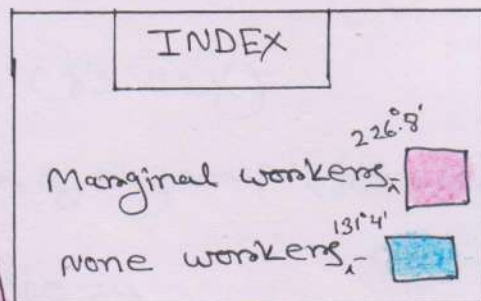 INDEX
226°.8'
Marginal workers,-
131°4'
None workers,-